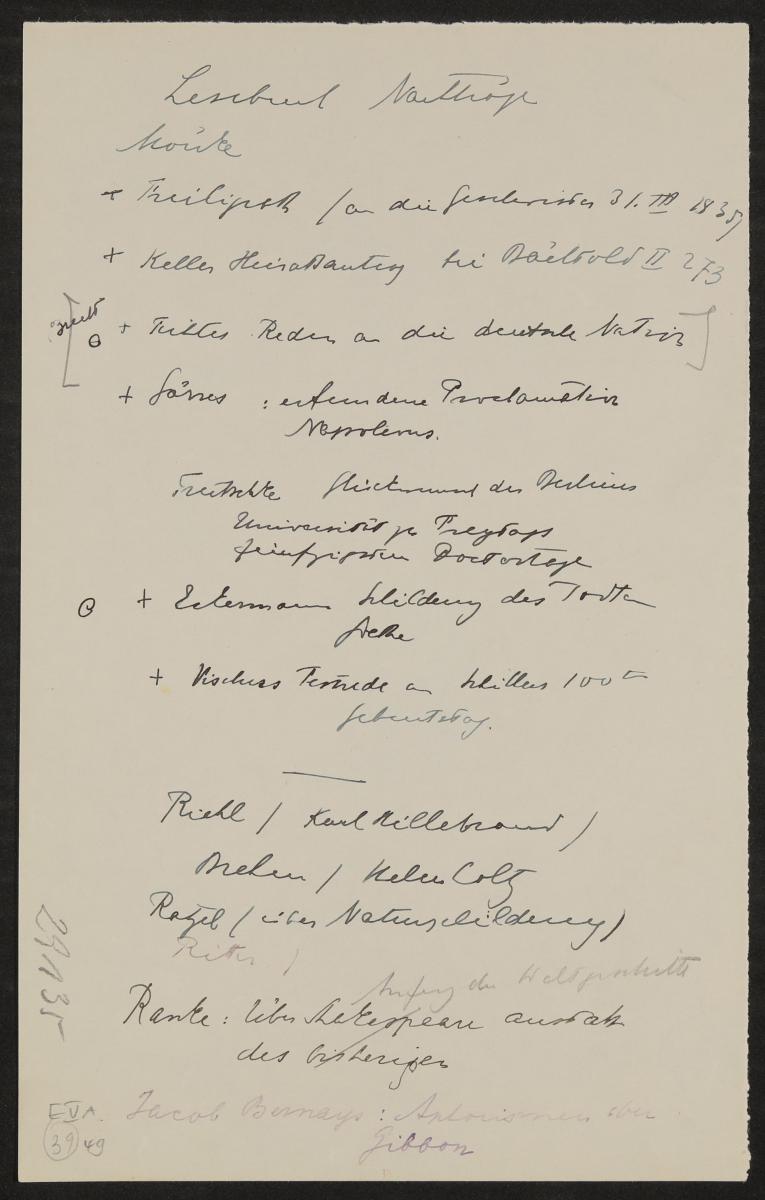 Lesebuch Nachträge
Mörike
+ Freiligrath / an die Geschwister 31. III 1835)
+ Keller Heiratsantrag bei Bächtold II 273
+ Fichtes Reden an die deutsche Nation
+ Görres : erfundene Proclamation
Napoleons.
Treitschke Glückwunsch der Berliner
Universität zu Freytags
fünfzigstem Doctortage
+ Eckermann Schilderung des Todten
Goethe
+ Vischers Festrede an Schillers 100ten
Geburtstag.
Riehl / Karl Hillebrand /
Brehm / Helmholtz
Ratzel (über Naturschilderung)
Ritter /
Anfang der Weltgeschichte
Ranke : Über Shakespeare anstatt
des bisherigen
Jacob Bernays : Aphorismen über
Gibbon
E V A
39 49